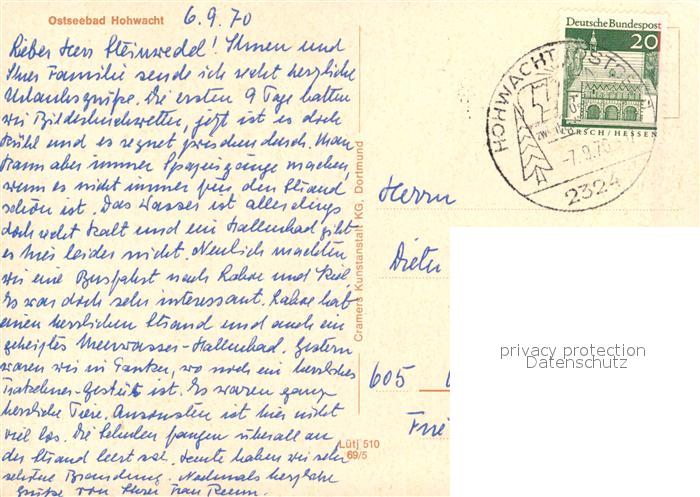 Ostseebad Hohwacht
6.9.70
Lieber Herr Steinwedel! Ihnen und
Ihrer Familie sende ich recht herzliche
Urlaubsgrüße. Die ersten 9 Tage hatten
wir Bilderbuchwetter, jetzt ist es doch
kühl und es regnet zwischendurch. Man
kann aber immer Spaziergänge machen,
wenn es nicht immer für den Strand
schön ist. Das Wasser ist allerdings
doch recht kalt und ein Hallenbad gibt
es hier leider nicht. Neulich machten
wir eine Busfahrt nach Laboe und Kiel.
Es war doch sehr interessant. Laboe hat
einen herrlichen Strand und auch ein
geheiztes Meerwasser-Hallenbad. Gestern
waren wir in wo noch ein herrliches
Trakehner-Gestüt ist. Es waren ganz
herrliche Tiere. Ansonsten ist hier nicht
viel los. Die Schulen fangen überall an
der Strand leert sich. Heute haben wir sehr
schöne Brandung. Nochmals herzliche
Grüße von Ihrer Frau
Cramers Kunstanstalt KG, Dortmund
Lütj 510
69/5
Deutsche Bundespost
20
LORSCH/HESSEN
HOHWACHT
-7.9.70
2324
Herrn
Dieter
605
privacy protection
Datenschutz